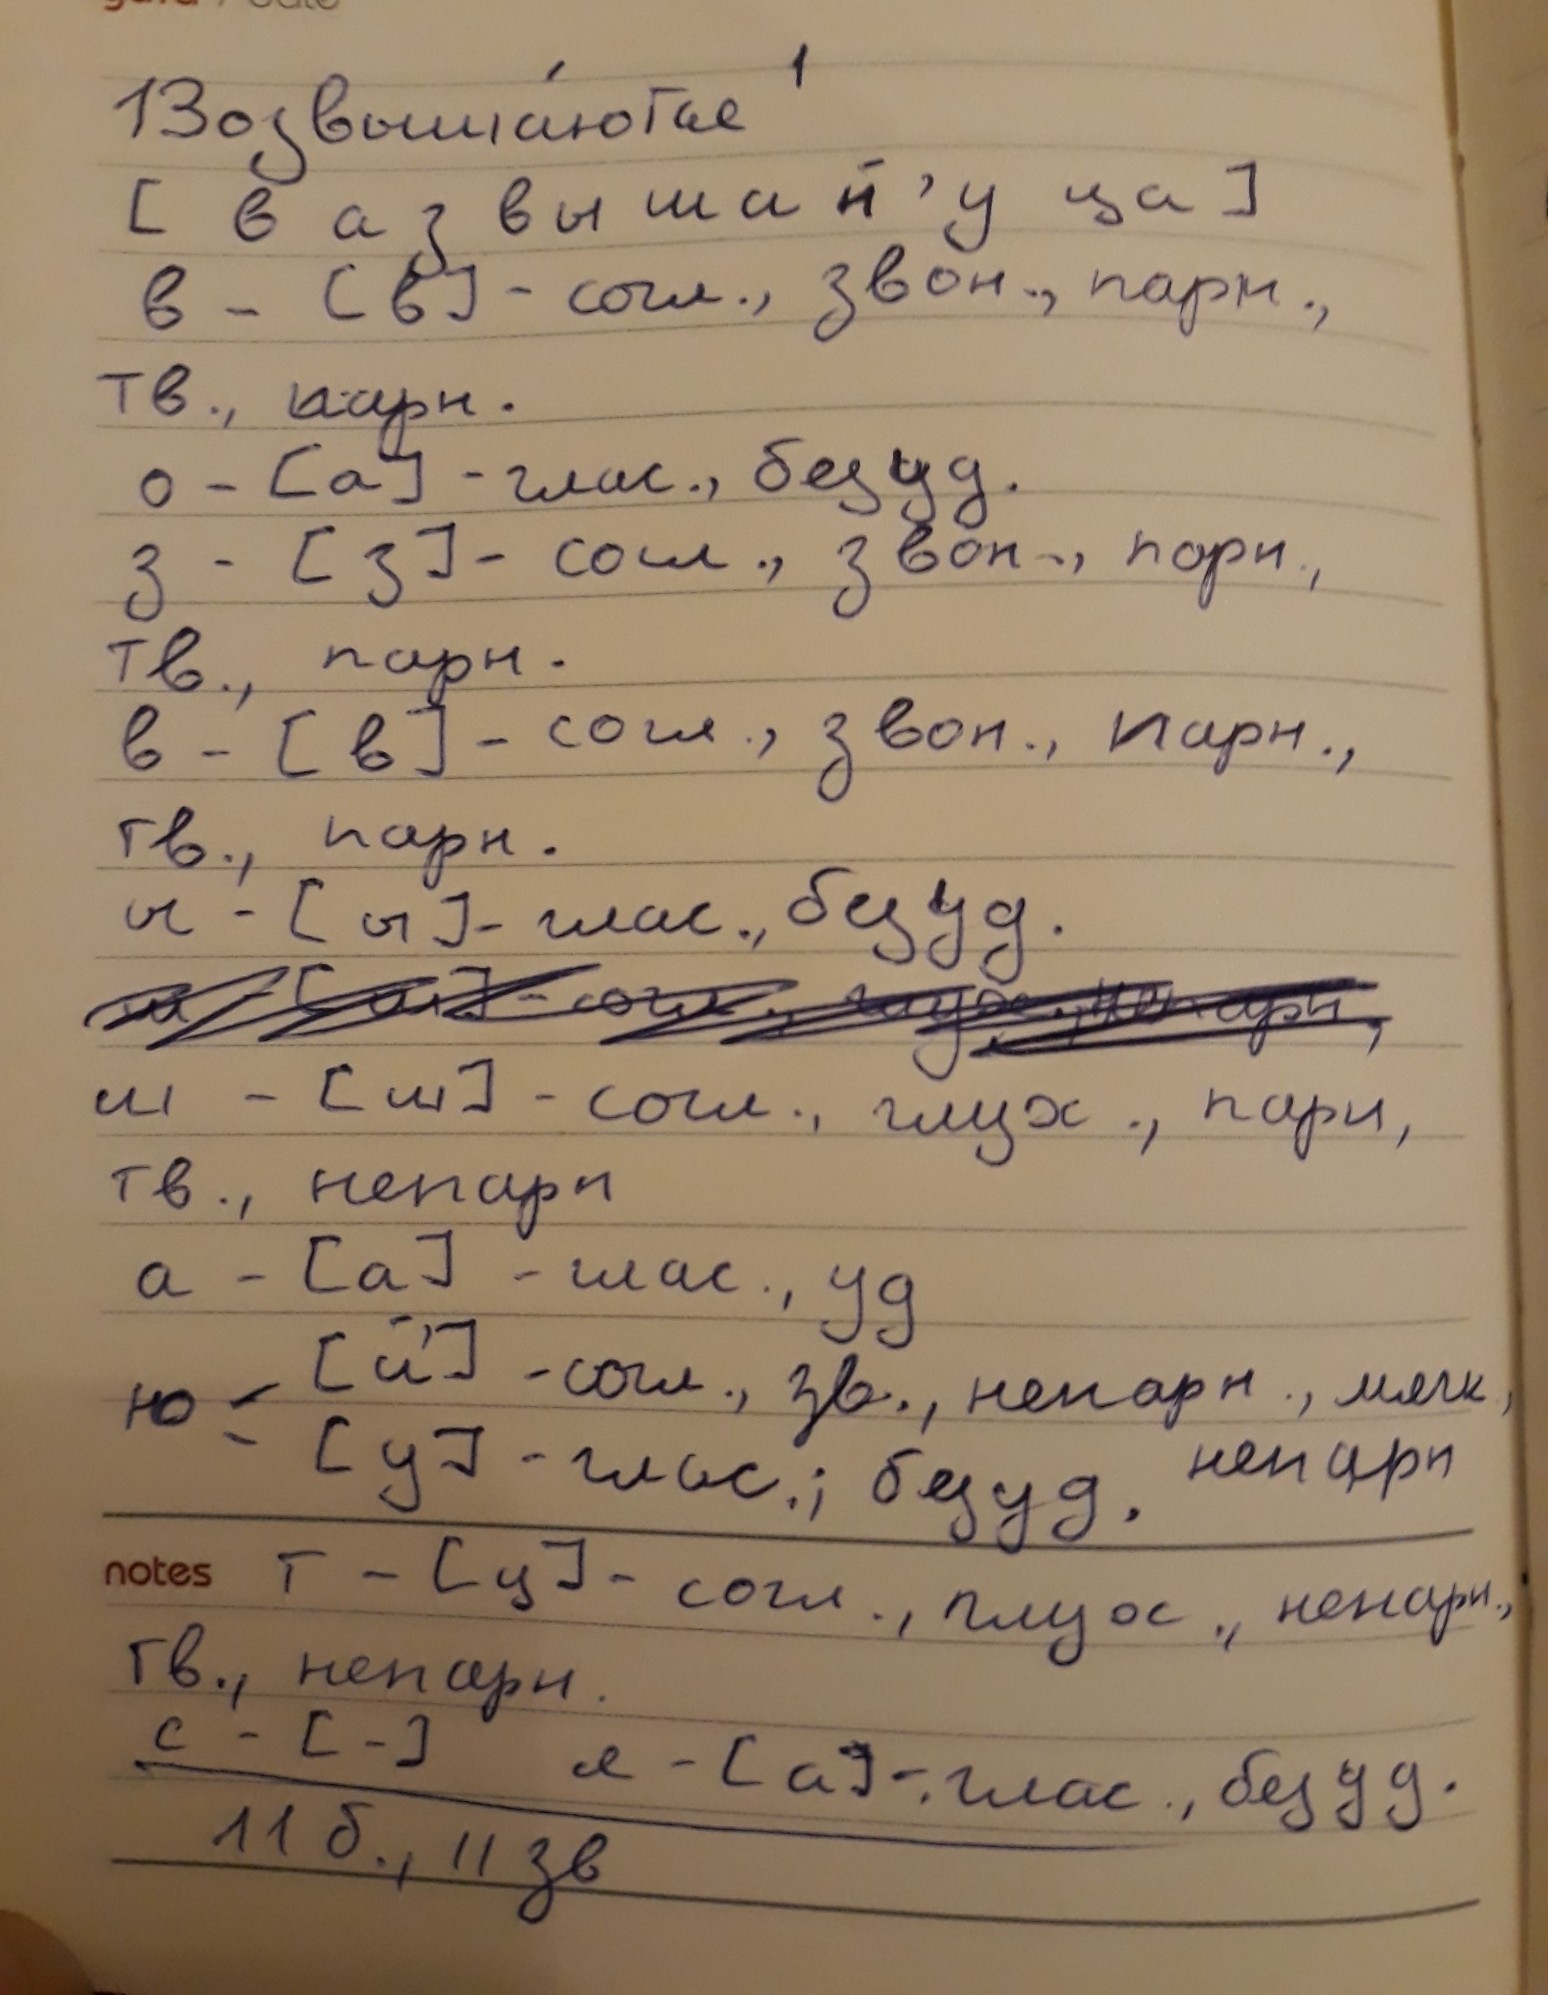 Возвыша́ются ¹
[ в а з в ы ш а й' у ца ]
в - [в] - согл., звон., парн.,
тв., парн.
о - [а] - глас., безуд.
з - [з] - согл., звон., парн.,
тв., парн.
в - [в] - согл., звон., парн.,
тв., парн.
ы - [ы] - глас., безуд.
ш - [ш] - согл., глух., непарн,
ш - [ш] - согл., глух., парн,
тв., непарн
а - [а] - глас., уд
[й'] - согл., зв., непарн., мягк,
ю
[у] - глас.; безуд. непарн
notes т - [ц] - согл., глух., непарн.,
тв., непарн.
с - [-] я - [а] - глас., безуд.
11 б., 11 зв